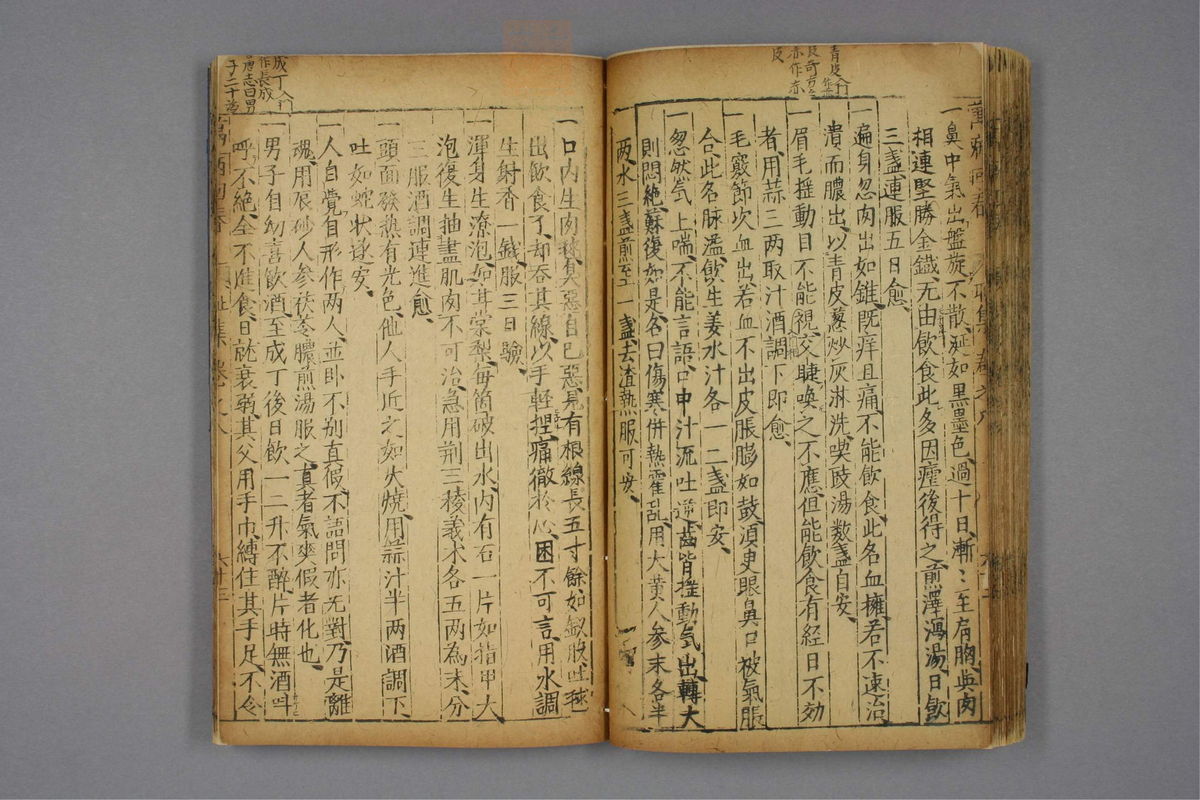 青皮入门
皮
一鼻中氣出盤旋不散涎如黒墨色過十日漸〻至肩胸與肉
相連堅勝金鐵无由飲食此多因瘧後得之煎澤瀉湯日飲
三盞連服五日愈
一遍身忽肉出如錐既痒且痛不能飲食此名血擁若不速治
潰而膿出以青皮葱炒灰淋洗喫豉湯数盞自安
一眉毛揺動目不能視交睫喚之不應但能飲食有経日不効
者用蒜三两取汁酒調下即愈
一毛竅節次血出若血不出皮脹膨如鼓湏臾眼鼻口被氣脹
合此名脉溢飲生姜水汁各一二盞即安
一忽然気上喘不能言語口中汁流吐逆齒皆揺動気出轉大
則悶絶蘇復如是名曰傷寒併熱霍乱用大黄人参末各半
两水三盞煎至一盞去渣熱服可安
成丁入门
作長成
唐志曰男
子二十為
一口内生肉毬臭惡自已惡見有根線長五寸餘如釵股吐毬
出飲食了却吞其線以手輕捏痛徹於心困不可言用水調
生射香一錢服三日驗
一渾身生潦泡如甘棠梨每箇破出水内有石一片如指甲大
泡復生抽盡肌肉不可治急用荆三稜莪术各五两為末分
三服酒調連進愈
一頭面發热有光色他人手近之如火燒用蒜汁半两酒調下
吐如蛇状遂安
一人自覺自形作两人並卧不別真假不語問亦无對乃是離
魂用辰砂人参茯苓膿煎湯服之真者氣爽假者化也
一男子自幼喜飲酒至成丁後日飲一二升不醉片時無酒呌
呼不絶全不進食日就衰弱其父用手巾縛住其手足不令